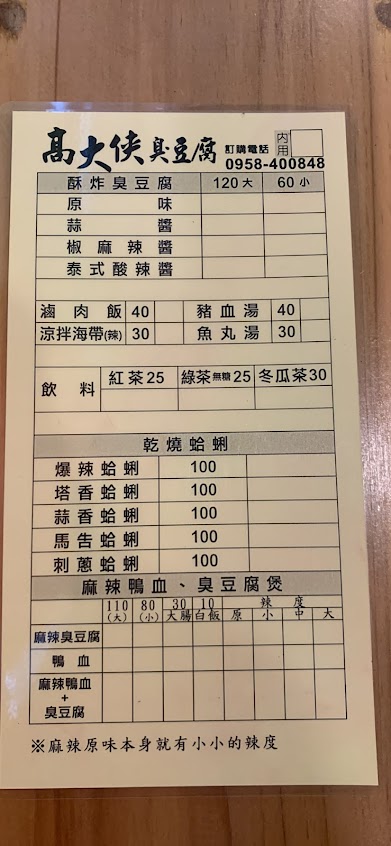 高大俠臭豆腐 訂購電話 內用
0958-400848
酥炸臭豆腐 120大 60小
原味
蒜醬
椒麻辣醬
泰式酸辣醬
滷肉飯 40 豬血湯 40
涼拌海帶(辣) 30 魚丸湯 30
飲料 紅茶25 綠茶無糖25 冬瓜茶30
乾燒蛤蜊
爆辣蛤蜊 100
塔香蛤蜊 100
蒜香蛤蜊 100
馬告蛤蜊 100
刺蔥蛤蜊 100
麻辣鴨血、臭豆腐煲
110(大) 80(小) 30大腸 10白飯 辣度
原 小 中 大
麻辣臭豆腐
鴨血
麻辣鴨血
+
臭豆腐
※麻辣原味本身就有小小的辣度